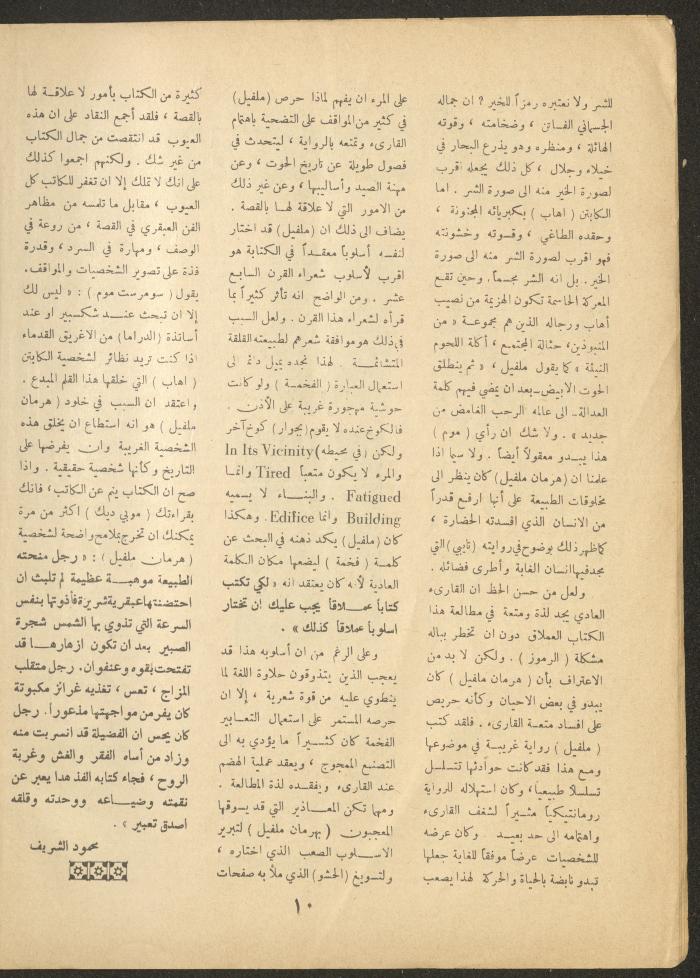 للشر ولا نعتبره رمزاً للخير ? ان جماله
الجسماني الفاتن ، وضخامته ، وقوته
الهائلة ، ومنظره وهو يذرع البحار في
خيلاء وجلال ، كل ذلك يجعله اقرب
لصورة الخير منه الى صورة الشر . اما
الكابتن ( اهاب ) بكبريائه المجنونة ،
وحقده الطاغي ، وقسوته وخشونته
فهو اقرب لصورة الشر منه الى صورة
الخير . بل انه الشر مجسماً . وحين تقع
المعركة الحاسمة تكون الهزيمة من نصيب
أهاب ورجاله الذين هم مجموعة « من
المنبوذين، حثالة المجتمع ، أكلة اللحوم
النيئة » كما يقول ملفيل ، « ثم ينطلق
الحوت الابيض-بعد ان يمضي فيهم كلمة
العدالة- الى عالمه الرحب الغامض من
جديد » . ولا شك ان رأي ( موم )
هذا يبدو معقولاً أيضاً . ولا سيما اذا
علمنا ان (هرمان ملفيل) كان ينظر الى
مخلوقات الطبيعة على أنها ارفع قدراً
من الانسان الذي افسدته الحضارة ،
كما ظهر ذلك بوضوح في روايته (تايبي) التي
مجد فيها انسان الغابة وأطرى فضائله .
ولعل من حسن الحظ ان القارىء
العادي يجد لذة ومتعة في مطالعة هذا
الكتاب العملاق دون ان تخطر بباله
مشكلة ( الرموز ) . ولكن لا بد من
الاعتراف بأن ( هرمان ملفيل ) كان
يبدو في بعض الاحيان وكأنه حريص
على افساد متعة القارىء . فلقد كتب
( ملفيل ) رواية غريبة في موضوعها
ومع هذا فقد كانت حوادثها تتسلسل
تسلسلاً طبيعياً، وكان استهلاله للرواية
رومانتيكياً مثيراً لشغف القارىء
واهتمامه الى حد بعيد . وكان عرضه
للشخصيات عرضاً موفقاً للغاية جعلها
تبدو نابضة بالحياة والحركة لهذا يصعب
على المرء ان يفهم لماذا حرص (ملفيل)
في كثير من المواقف على التضحية باهتمام
القارىء وتمتعه بالرواية ، ليتحدث في
فصول طويلة عن تاريخ الحوت ، وعن
مهنة الصيد وأساليبها ، وعن غير ذلك
من الامور التي لا علاقة لها بالقصة .
يضاف الى ذلك ان (ملفيل) قد اختار
لنفسه أسلوباً معقداً في الكتابة هو
اقرب لأسلوب شعراء القرن السابع
عشر . ومن الواضح انه تأثر كثيراً بما
قرأه لشعراء هذا القرن . ولعل السبب
في ذلك هو موافقة شعرهم لطبيعته القلقة
المتشائمة . لهذا نجده يميل دائما الى
استعمال العبارة ( الفخمة ) ولو كانت
حوشية مهجورة غريبة على الأذن .
فالكوخ عنده لا يقوم (بجوار) كوخ آخر
ولكن (في محيطه) In Its Vicinity
والمرء لا يكون متعباً Tired وانما
Fatigued . والبناء لا يسميه
Building وانما Edifice. وهكذا
كان (ملفيل) يكد ذهنه في البحث عن
كلمة ( فخمة ) ليضعها مكان الكلمة
العادية لأنه كان يعتقد انه « لكي تكتب
كتاباً عملاقاً يجب عليك ان تختار
اسلوباً عملاقاً كذلك » .
وعلى الرغم من ان أسلوبه هذا قد
يعجب الذين يتذوقون حلاوة اللغة لما
ينطوي عليه من قوة شعرية ، إلا ان
حرصه المستمر على استعمال التعابير
الفخمة كان كثيراً ما يؤدي به الى
التصنع الممجوج ، ويعقد عملية الهضم
عند القارىء ويفقده لذة المطالعة .
ومهما تكن المعاذير التي قد يسوقها
المعجبون ( بهرمان ملفيل ) لتبرير
الاسلوب الصعب الذي اختاره ،
ولتسويغ (الحشو) الذي ملأ به صفحات
كثيرة من الكتاب بأمور لا علاقة لها
بالقصة ، فلقد أجمع النقاد على ان هذه
العيوب قد انتقصت من جمال الكتاب
من غير شك . ولكنهم اجمعوا كذلك
على انك لا تملك إلا ان تغفر للكاتب كل
العيوب ، مقابل ما تلمسه من مظاهر
الفن العبقري في القصة ، من روعة في
الوصف ، ومهارة في السرد ، وقدرة
فذة على تصوير الشخصيات والمواقف.
يقول ( سومرست موم ) : « ليس لك
إلا ان تبحث عند شكسبير او عند
أساتذة (الدراما) من الاغريق القدماء
اذا كنت تريد نظائر لشخصية الكابتن
( اهاب ) التي خلقها هذا القلم المبدع .
واعتقد ان السبب في خلود ( هرمان
ملفيل ) هو انه استطاع ان يخلق هذه
الشخصية الغريبة وان يفرضها على
التاريخ وكأنها شخصية حقيقية . واذا
صح ان الكتاب ينم عن الكاتب، فانك
بقراءتك ( موبي ديك ) اكثر من مرة
يمكنك ان تخرج بملامح واضحة لشخصية
( هرمان ملفيل ) : « رجل منحته
الطبيعة موهبة عظيمة لم تلبث ان
احتضنتها عبقرية شريرة فأذوتها بنفس
السرعة التي تذوي بها الشمس شجرة
الصبير بعد ان تكون ازهارها قد
تفتحت بقوه وعنفوان . رجل متقلب
المزاج ، تعس ، تغذيه غرائز مكبوتة
كان يفر من مواجهتها مذعوراً . رجل
كان يحس ان الفضيلة قد انسربت منه
وزاد من أساه الفقر والفش وغربة
الروح ، فجاء كتابه الفذ هذا يعبر عن
نقمته وضياعه ووحدته وقلقه
اصدق تعبير » .
محمود الشريف
١٠